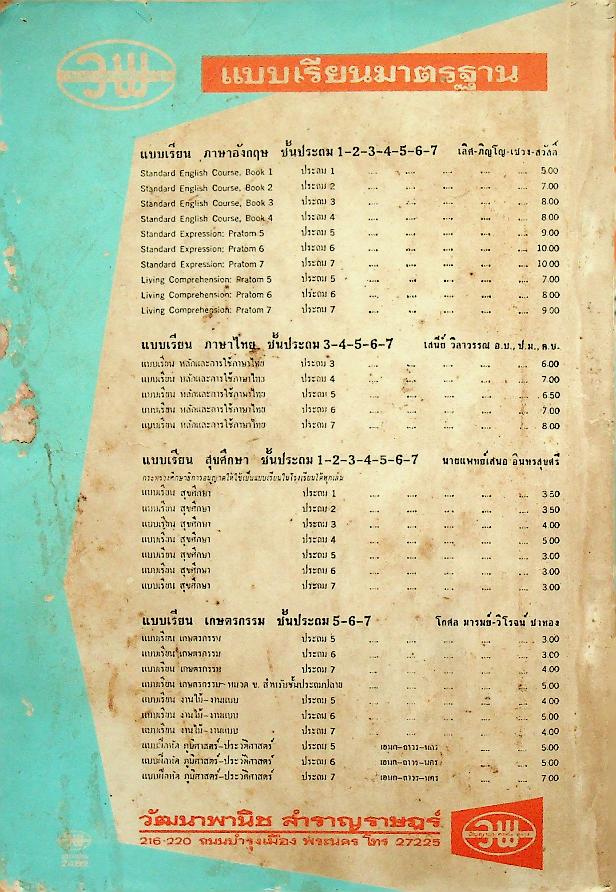 วพ
แบบเรียนมาตรฐาน
แบบเรียน ภาษาอังกฤษ ชั้นประถม 1-2-3-4-5-6-7 เลิศ-ภิญโญ-เชวง-สวัสดิ์
Standard English Course, Book 1 ประถม 1 .... .... .... .... .... 5.00
Standard English Course, Book 2 ประถม 2 .... .... .... .... .... 7.00
Standard English Course, Book 3 ประถม 3 .... .... .... .... .... 8.00
Standard English Course, Book 4 ประถม 4 .... .... .... .... .... 8.00
Standard Expression: Pratom 5 ประถม 5 .... .... .... .... .... 9.00
Standard Expression: Pratom 6 ประถม 6 .... .... .... .... .... 10.00
Standard Expression: Pratom 7 ประถม 7 .... .... .... .... .... 10.00
Living Comprehension: Pratom 5 ประถม 5 .... .... .... .... .... 7.00
Living Comprehension: Pratom 6 ประถม 6 .... .... .... .... .... 8.00
Living Comprehension: Pratom 7 ประถม 7 .... .... .... .... .... 9.00
แบบเรียน ภาษาไทย ชั้นประถม 3-4-5-6-7 เสนีย์ วิลาวรรณ อ.บ., ป.ม., ค.บ.
แบบเรียน หลักและการใช้ภาษาไทย ประถม 3 .... .... .... .... .... 6.00
แบบเรียน หลักและการใช้ภาษาไทย ประถม 4 .... .... .... .... .... 7.00
แบบเรียน หลักและการใช้ภาษาไทย ประถม 5 .... .... .... .... .... 6.50
แบบเรียน หลักและการใช้ภาษาไทย ประถม 6 .... .... .... .... .... 7.00
แบบเรียน หลักและการใช้ภาษาไทย ประถม 7 .... .... .... .... .... 8.00
แบบเรียน สุขศึกษา ชั้นประถม 1-2-3-4-5-6-7 นายแพทย์เสนอ อินทรสุขศรี
กระทรวงศึกษาธิการอนุญาตให้ใช้เป็นแบบเรียนในโรงเรียนได้ทุกเล่ม
แบบเรียน สุขศึกษา ประถม 1 .... .... .... .... .... 3.50
แบบเรียน สุขศึกษา ประถม 2 .... .... .... .... .... 3.50
แบบเรียน สุขศึกษา ประถม 3 .... .... .... .... .... 4.00
แบบเรียน สุขศึกษา ประถม 4 .... .... .... .... .... 5.00
แบบเรียน สุขศึกษา ประถม 5 .... .... .... .... .... 3.00
แบบเรียน สุขศึกษา ประถม 6 .... .... .... .... .... 3.00
แบบเรียน สุขศึกษา ประถม 7 .... .... .... .... .... 3.00
แบบเรียน เกษตรกรรม ชั้นประถม 5-6-7 โกศล มารมย์-วิโรจน์ ชาทอง
แบบเรียน เกษตรกรรม ประถม 5 .... .... .... .... .... 3.00
แบบเรียน เกษตรกรรม ประถม 6 .... .... .... .... .... 3.00
แบบเรียน เกษตรกรรม ประถม 7 .... .... .... .... .... 4.00
แบบเรียน เกษตรกรรม-หมวด ข. สำหรับชั้นประถมปลาย .... .... .... .... 5.00
แบบเรียน งานไม้-งานแบบ ประถม 5 .... .... .... .... .... 4.00
แบบเรียน งานไม้-งานแบบ ประถม 6 .... .... .... .... .... 5.00
แบบเรียน งานไม้-งานแบบ ประถม 7 .... .... .... .... .... 4.00
แบบฝึกหัด ภูมิศาสตร์-ประวัติศาสตร์ ประถม 5 เอนก-ถาวร-นคร .... .... 5.00
แบบฝึกหัด ภูมิศาสตร์-ประวัติศาสตร์ ประถม 6 เอนก-ถาวร-นคร .... .... 5.00
แบบฝึกหัด ภูมิศาสตร์-ประวัติศาสตร์ ประถม 7 เอนก-ถาวร-นคร .... .... 7.00
วัฒนาพานิช สำราญราษฎร์
216-220 ถนนบำรุงเมือง พระนคร โทร 27225
วพ